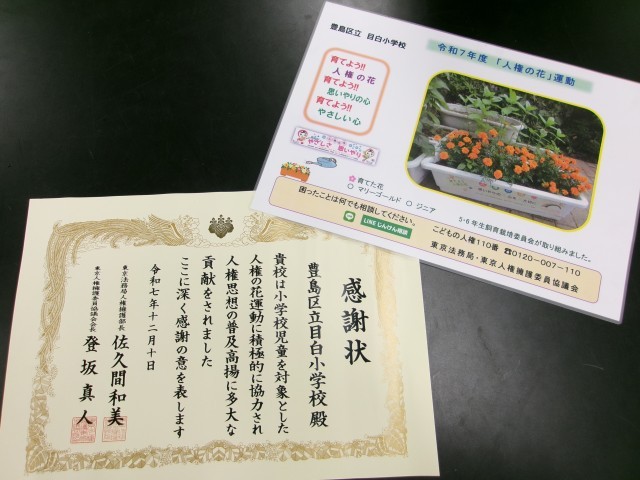 豊島区立 目白小学校
令和7年度 「人権の花」運動
育てよう!!
人権の花
育てよう!!
思いやりの心
育てよう!!
やさしい心
やさしさ 思いやり
育てた花
○ マリーゴールド ○ ジニア
5・6年生飼育栽培委員会が取り組みました。
困ったことは何でも相談してください。
LINEじんけん相談
こどもの人権110番 ☎0120-007-110
東京法務局・東京人権擁護委員協議会
感謝状
豊島区立目白小学校 殿
貴校は小学校児童を対象とした
人権の花運動に積極的に協力され
人権思想の普及高揚に多大な
貢献をされました
ここに深く感謝の意を表します
令和七年十二月十日
東京法務局人権擁護部長 佐久間和美
東京人権擁護委員協議会会長 登坂真人